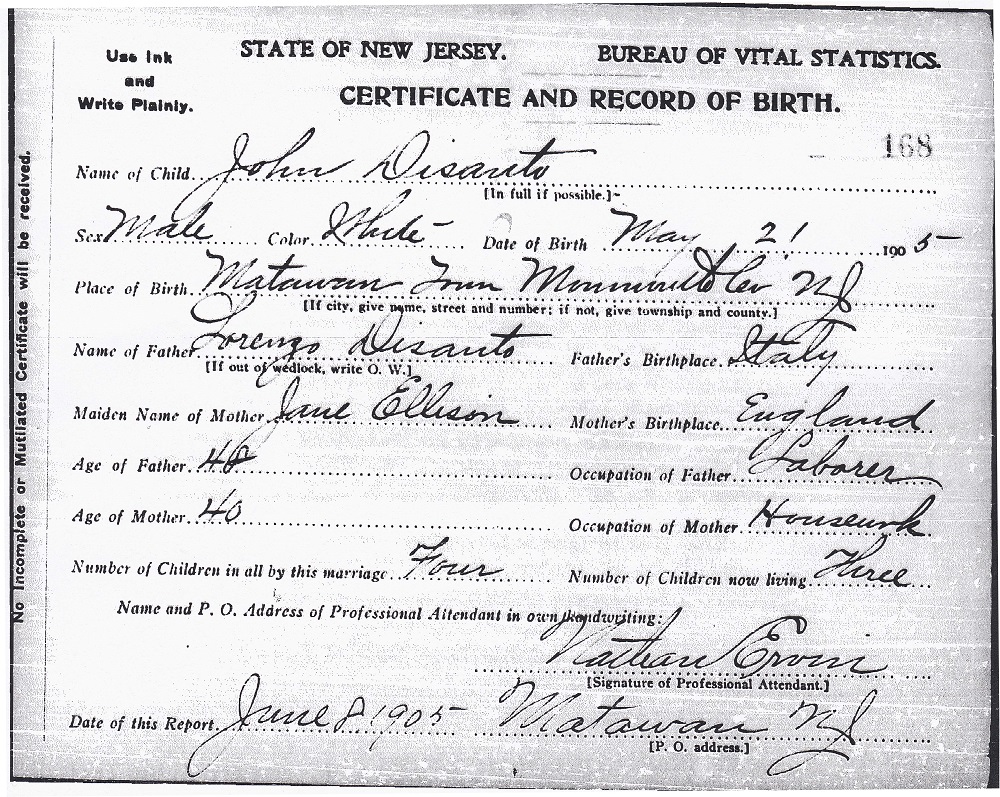 Use Ink
and
Write Plainly.
STATE OF NEW JERSEY. BUREAU OF VITAL STATISTICS.
CERTIFICATE AND RECORD OF BIRTH.
168
No Incomplete or Mutilated Certificate will be received.
Name of Child John Disanto
[In full if possible.]
Sex Male Color White Date of Birth May 21 1905
Place of Birth Matawan Town Monmouth Co NJ
[If city, give name, street and number; if not, give township and county.]
Name of Father Lorenzo Disanto Father's Birthplace Italy
[If out of wedlock, write O. W.]
Maiden Name of Mother Jane Ellison Mother's Birthplace England
Age of Father Occupation of Father Laborer
Age of Mother 40 Occupation of Mother Housewrk
Number of Children in all by this marriage Four Number of Children now living Three
Name and P. O. Address of Professional Attendant in own handwriting:
Nathan Ervin
[Signature of Professional Attendant.]
Date of this Report June 8 1905 Matawan NJ
[P. O. address.]